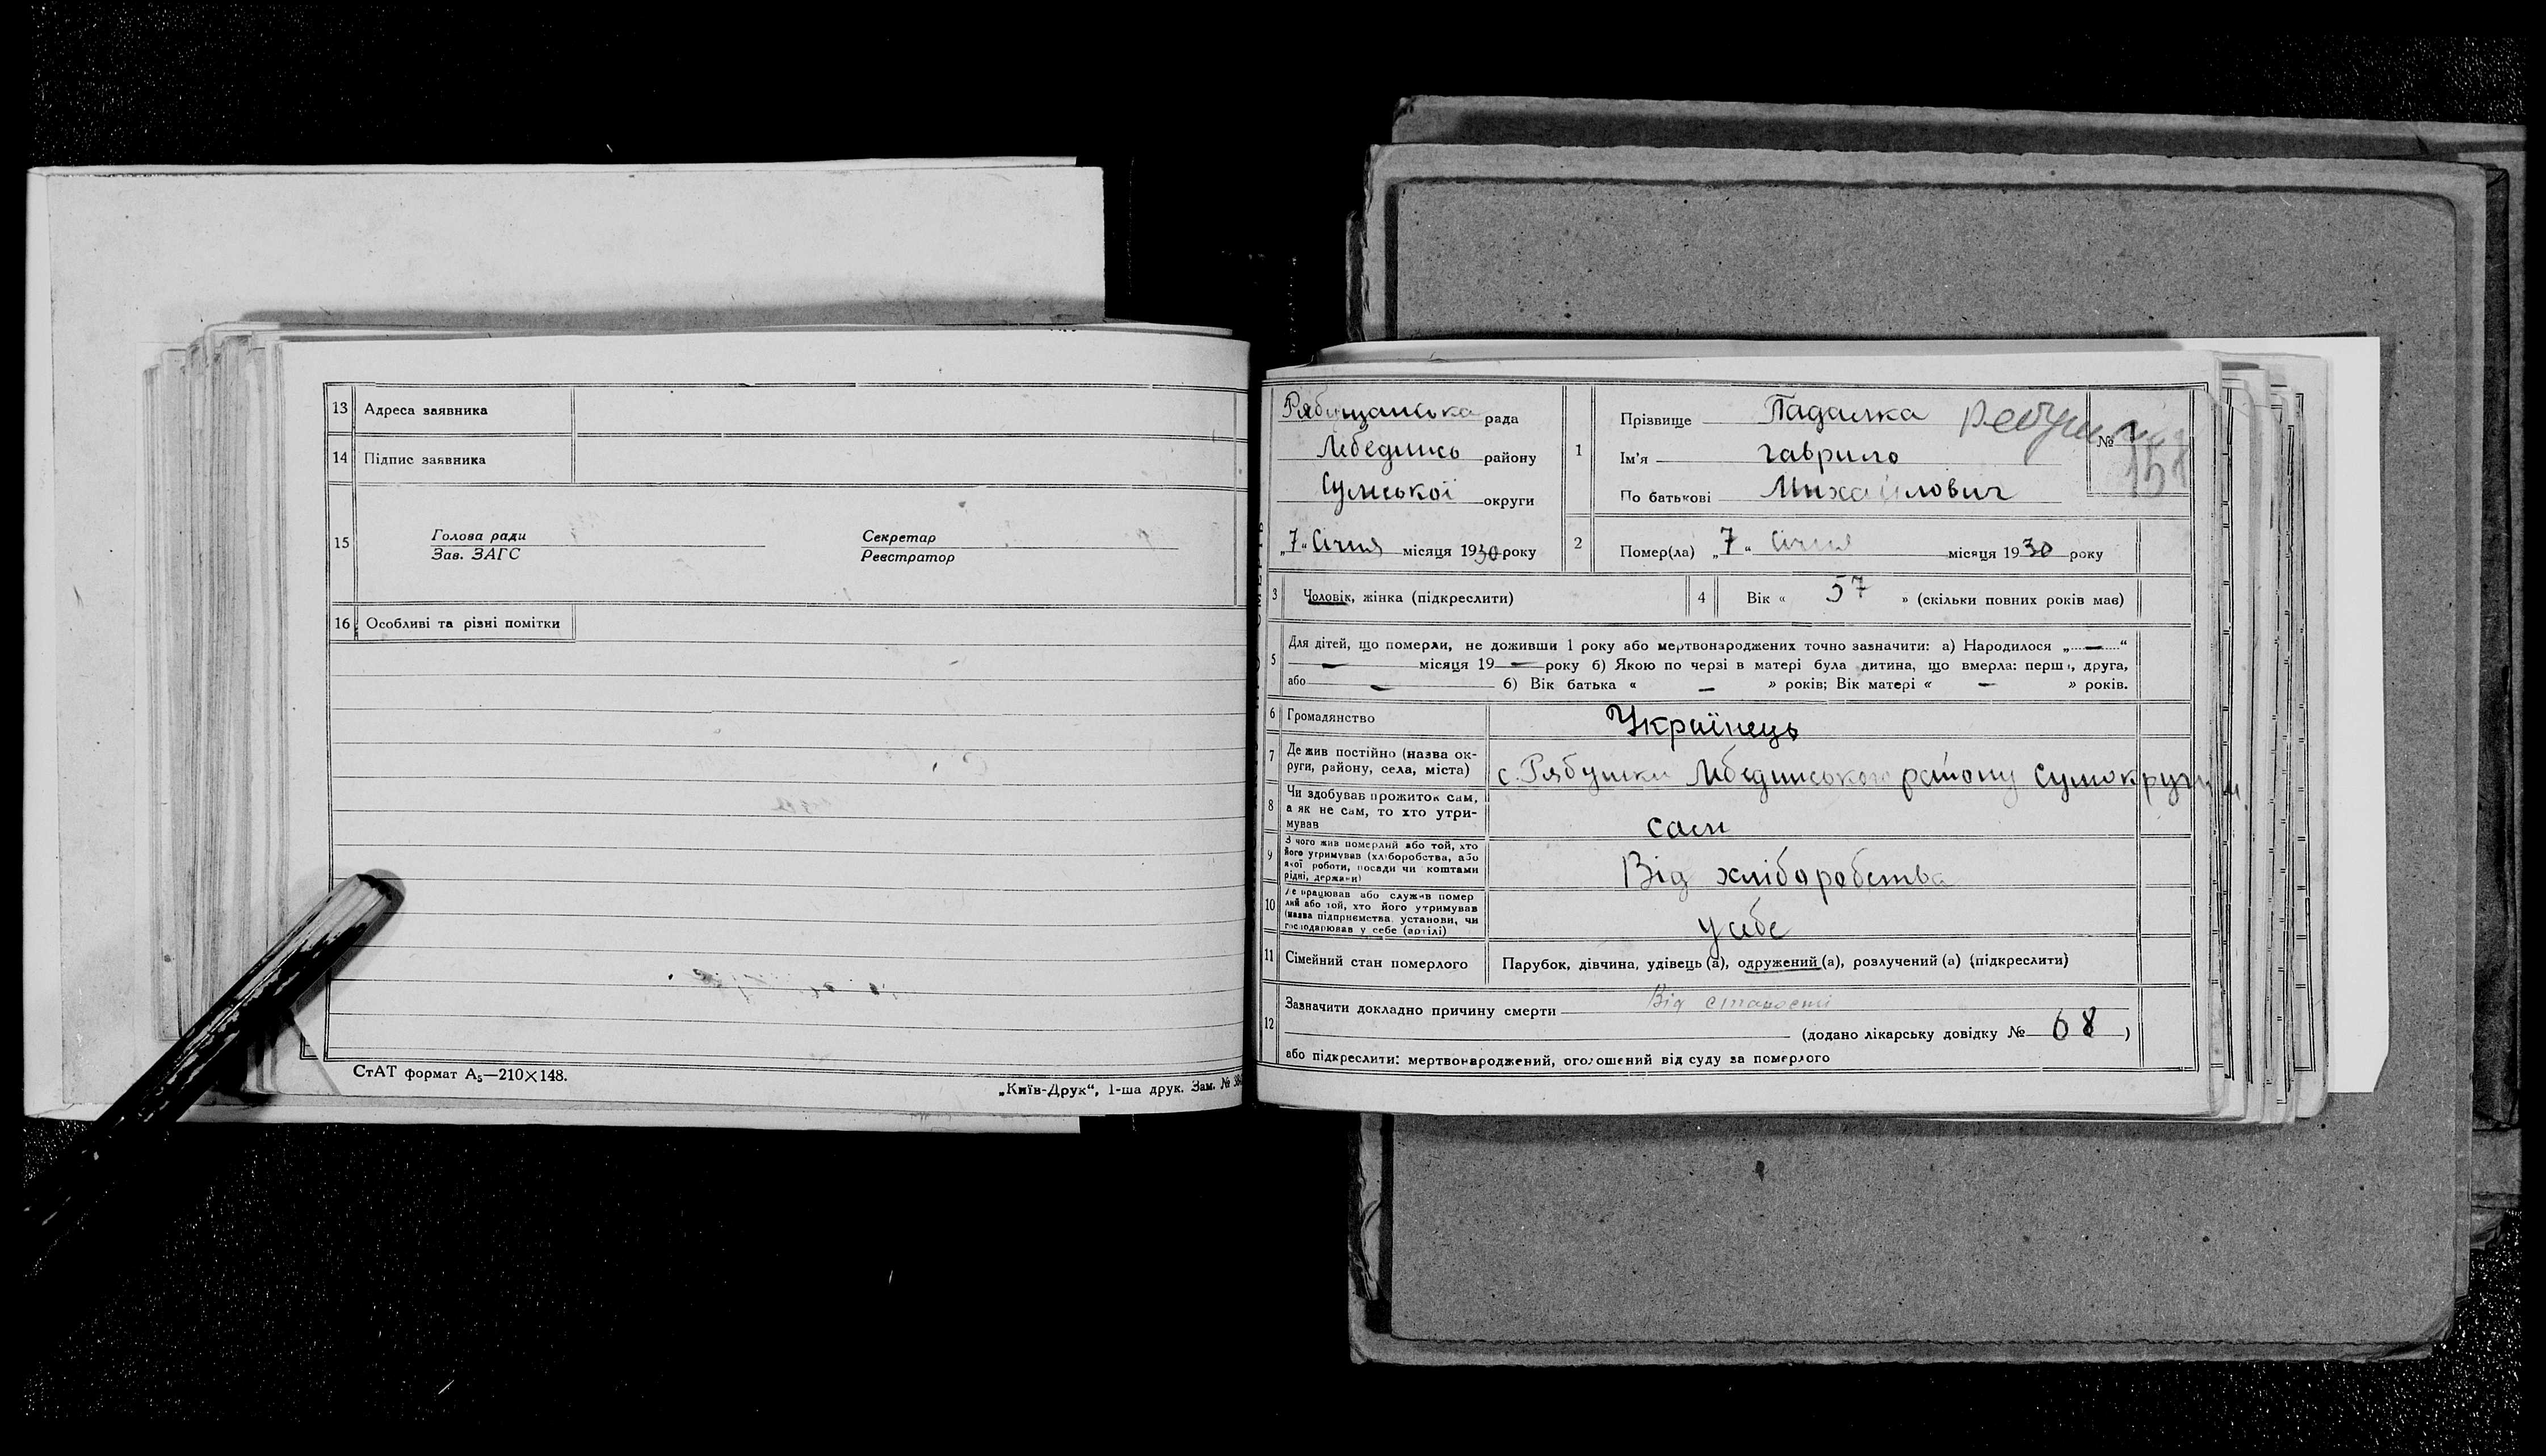 13 Адреса заявника
14 Підпис заявника
15 Голова ради
Зав. ЗАГС
Секретар
Реєстратор
16 Особливі та різні помітки
СтАТ формат А₅—210×148.
„Київ-Друк“, 1-ша друк. Зам. №
Рябущанська рада
Лебединсь району
Сумської округи
„7“ Січня місяця 1930 року
1 Прізвище Падалка
Ім'я гаврило
По батькові Михайлович
№
158
2 Помер(ла) „7“ Січня місяця 1930 року
3 Чоловік, жінка (підкреслити)
4 Вік « 57 » (скільки повних років має)
5 Для дітей, що померли, не доживши 1 року або мертвонароджених точно зазначити: а) Народилося „—“
— місяця 19—року б) Якою по черзі в матері була дитина, що вмерла: перша, друга,
або — б) Вік батька « — » років; Вік матері « — » років.
6 Громадянство Українець
7 Де жив постійно (назва ок-
руги, району, села, міста) с. Рябушки Лебединського району Сумокруги
8 Чи здобував прожиток сам,
а як не сам, то хто утри-
мував сам
9 З чого жив померлий або той, хто
його утримував (хліборобства, або
якої роботи, посади чи коштами
рідні, держави) Від хліборобства
10 Де працював або служив помер
лий або той, хто його утримував
(назва підприємства, установи, чи
господарював у себе (артілі) у себе
11 Сімейний стан померлого Парубок, дівчина, удівець (а), одружений (а), розлучений (а) (підкреслити)
12 Зазначити докладно причину смерти Від старости
(додано лікарську довідку № 68 )
або підкреслити: мертвонароджений, оголошений від суду за померлого